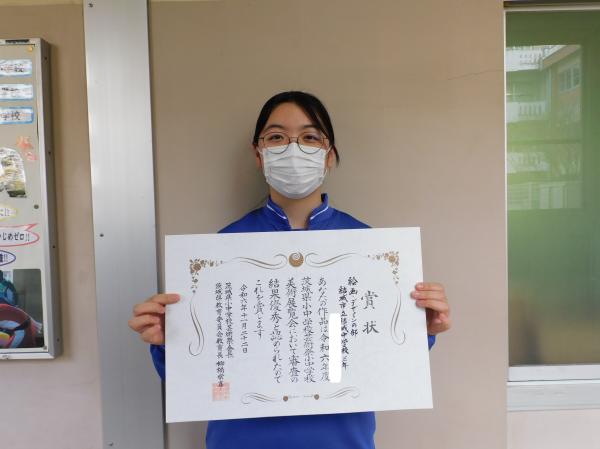 賞状
絵画・デザインの部
結城市立結城中学校三年
あなたの作品は令和六年度
茨城県小中学校芸術祭小中学校
美術展覧会において審査の
結果優秀と認められたので
これを賞します
令和六年十一月二十二日
茨城県小中学校芸術祭会長
茨城県教育委員会教育長
学校
いじめゼロ!!